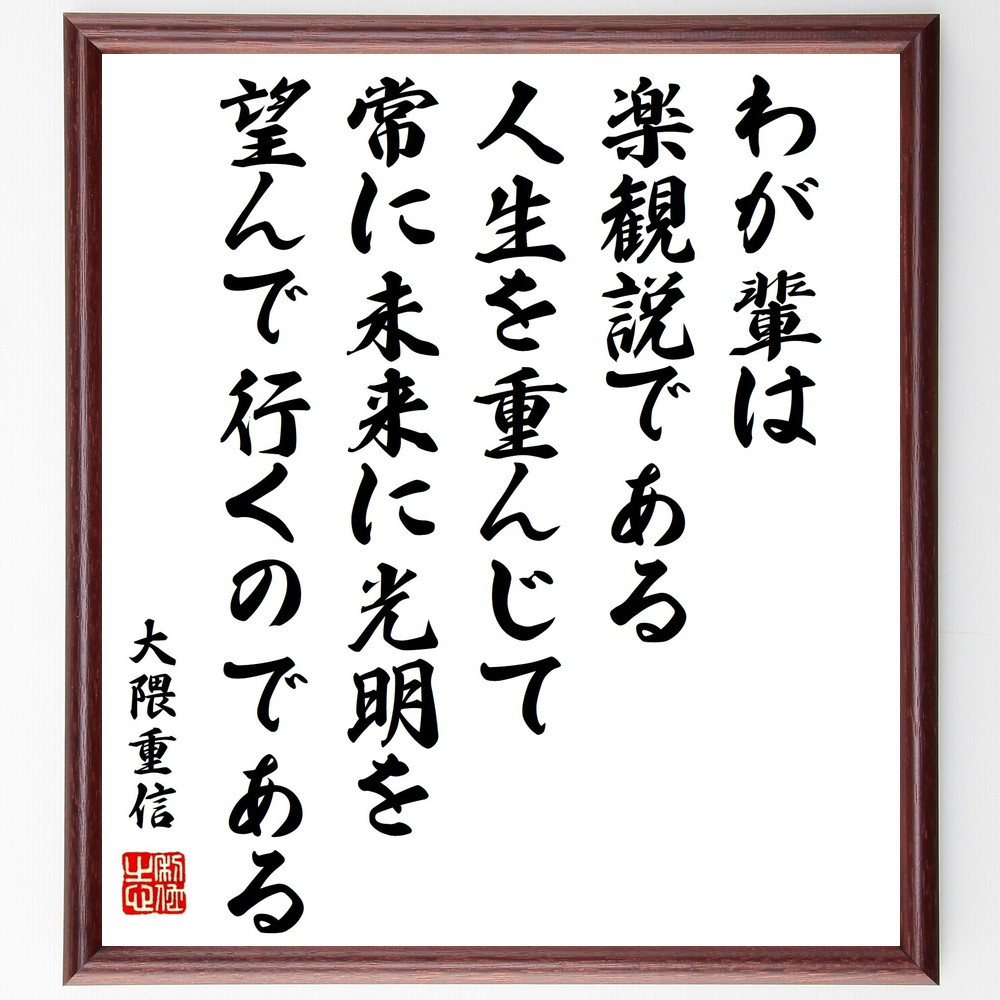 わが輩は
楽観説である
人生を重んじて
常に未来に光明を
望んで行くのである
大隈重信